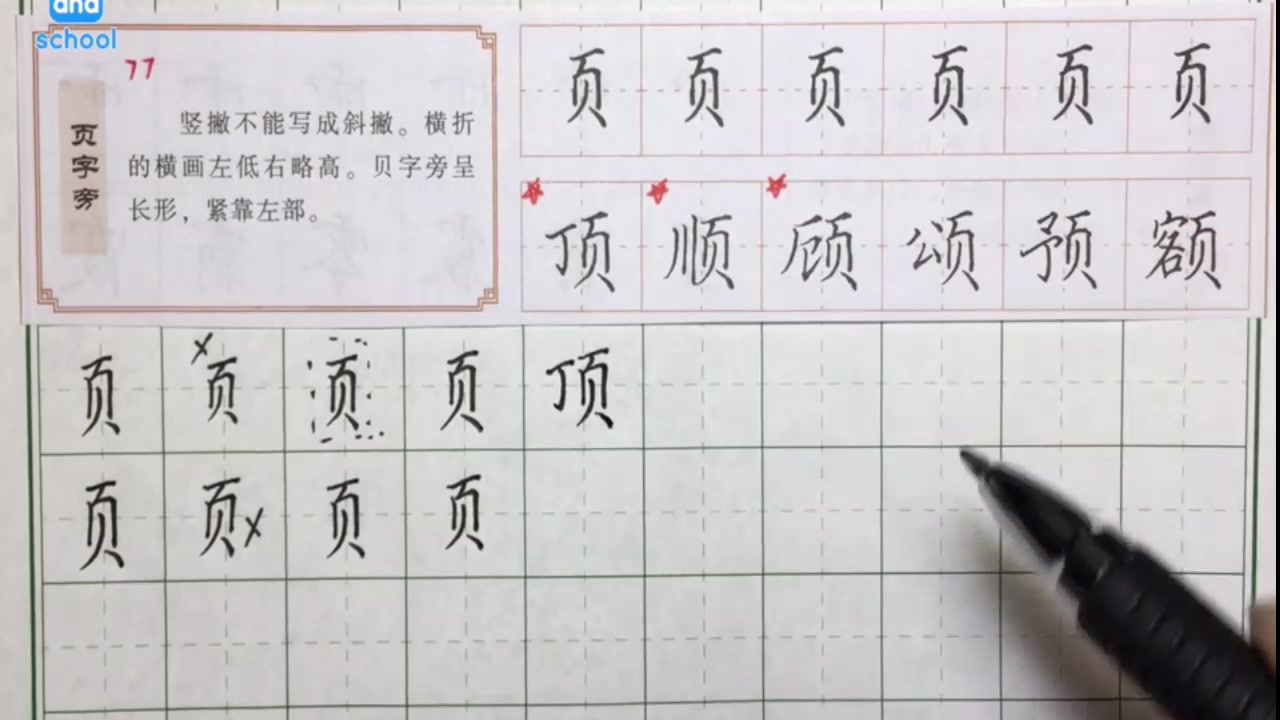 and
school
77
页字旁
竖撇不能写成斜撇。横折
的横画左低右略高。贝字旁呈
长形，紧靠左部。
页 页 页 页 页 页
顶 顺 顾 颂 预 额
页 x 页 页 页 顶
页 页 x 页 页